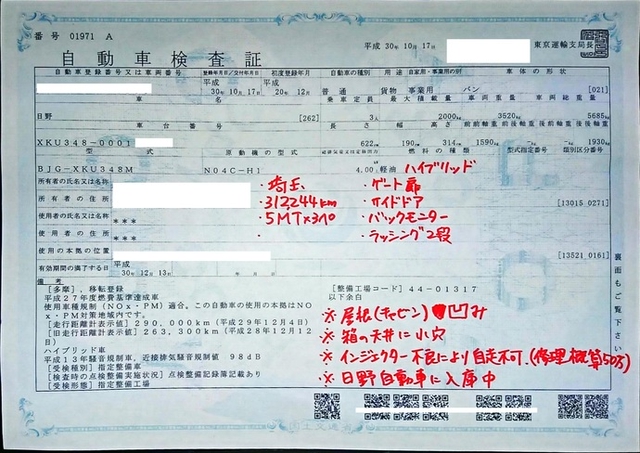 番号 01971 A
平成 30年10月17日 東京運輸支局長
自動車検査証
自動車登録番号又は車両番号 登録年月日/交付年月日 初度登録年月 自動車の種別 用途 自家用・事業用の別 車体の形状
平成 30年10月17日 平成 20年12月 普通 貨物 事業用 バン [021]
車名 乗車定員 最大積載量 車両重量 車両総重量
日野 [262] 3人 2000kg 3620kg 5685kg
車台番号 長さ 幅 高さ 前前軸重 前後軸重 後前軸重 後後軸重
XKU348-0001 622cm 190cm 314cm 1590kg -kg -kg 1930kg
型式 原動機の型式 燃料の種類 型式指定番号 類別区分番号
BJG-XKU348M N04C-H1 4.00 軽油 ハイブリッド
所有者の氏名又は名称
・埼玉 ・ゲート扉
所有者の住所 [13015 0271]
・312244km ・サイドドア
使用者の氏名又は名称 ***
・5MT×310 ・バックモニター
使用者の住所 ***
・ラッシング2段
使用の本拠の位置 [13521 0161]
有効期間の満了する日 平成 30年12月13日
備考
[多摩], 移転登録
平成27年度燃費基準達成車
使用車種規制(NOx・PM)適合。この自動車の使用の本拠はNOx・PM対策地域内です。
[走行距離計表示値] 290,000km (平成29年12月4日)
[旧走行距離計表示値] 263,300km (平成28年12月12日)
ハイブリッド車
平成13年騒音規制車、近接排気騒音規制値 98dB
[受検種別] 指定整備車
[検査時の点検整備実施状況] 点検整備記録簿記載あり
[受検形態] 指定整備工場
[整備工場コード] 44-01317
以下余白
※屋根(キャビン)凹み
※箱の天井に小穴
※インジェクター不良により自走不可.(修理概算50万)
※日野自動車に入庫中
裏面もご覧下さい